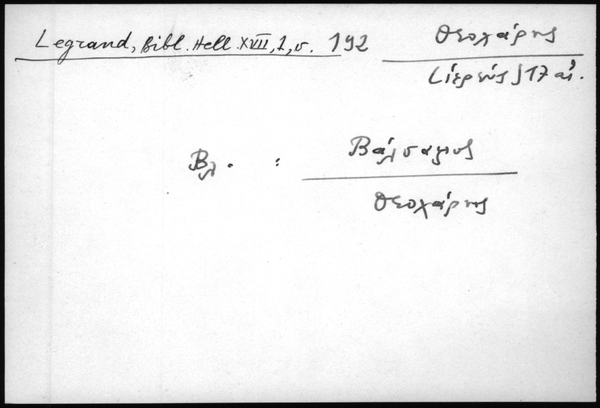 Legrand, Bibl. Hell. XVII, 1, σ. 192
Θεοχάρης
[ἱερεύς] 17 αἰ.
Βλ. :
Βάλσαμος
Θεοχάρης